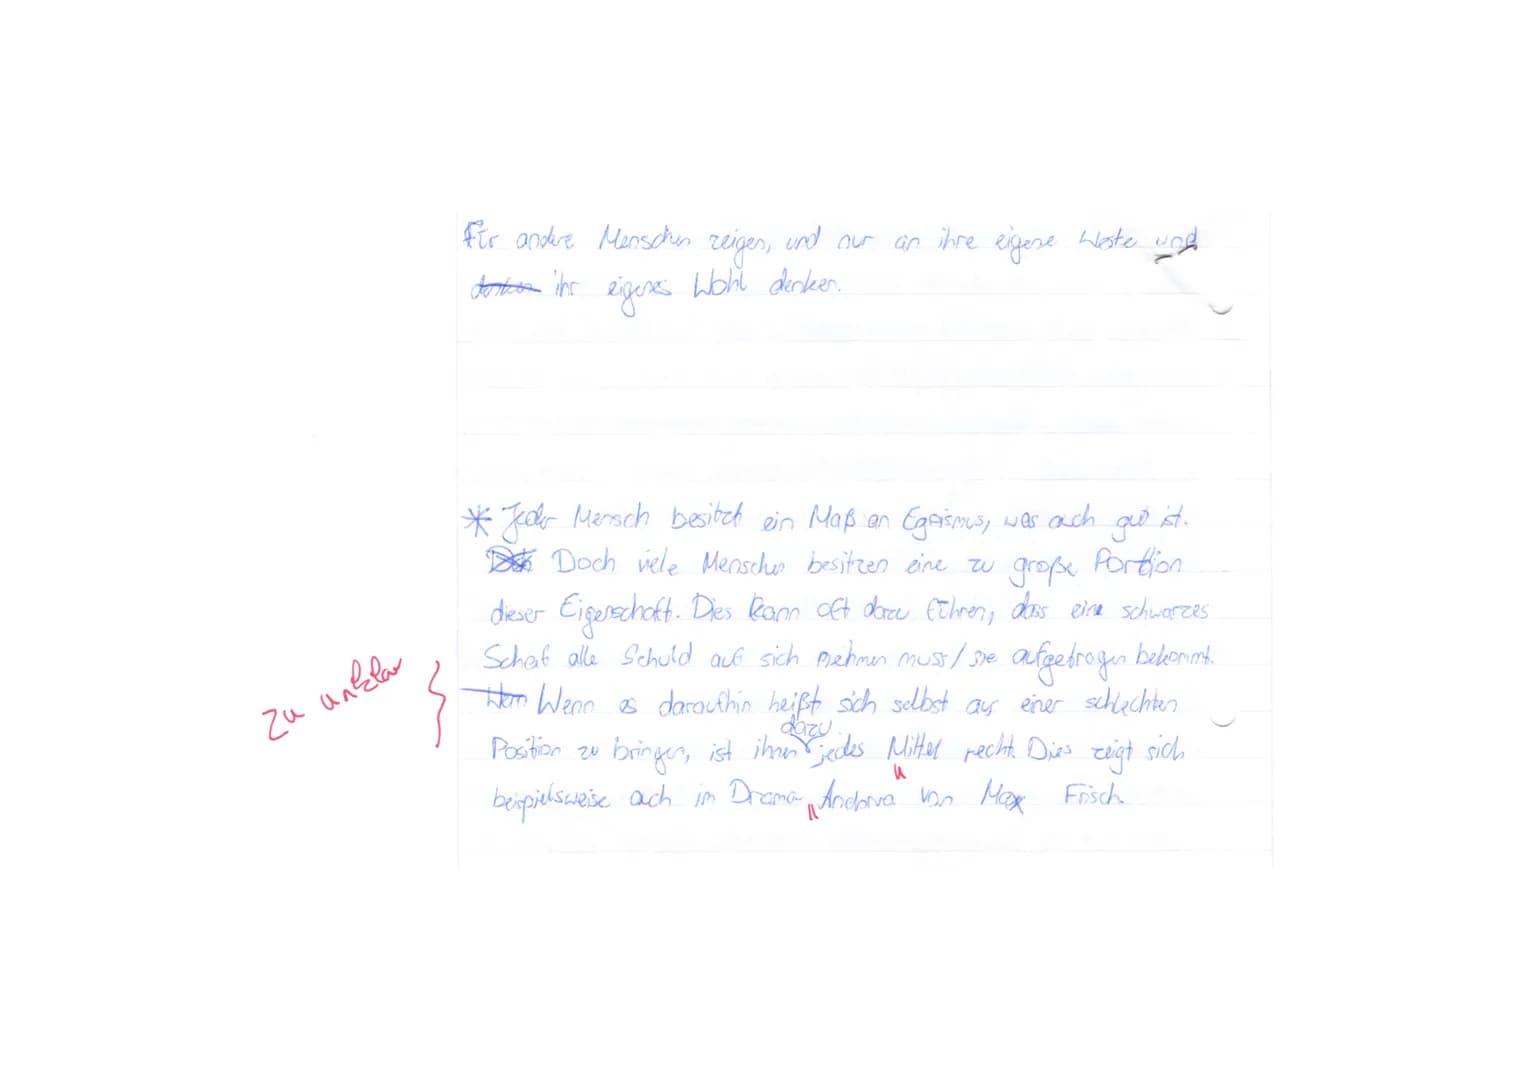 für andere Menschen zeigen, und nur an ihre eigene Weste und
ihr eigenes Wohl denken.
* Jeder Mensch besitzt ein Maß an Egoismus, was auch gut ist.
Doch viele Menschen besitzen eine zu große Portion
dieser Eigenschaft. Dies kann oft dazu führen, dass eine schwarzes
Schaf alle Schuld auf sich nehmen muss/sie aufgetragen bekommt.
zu unklar
Wenn es daraufhin heißt sich selbst aus einer schlechten
dazu
Position zu bringen, ist ihnen jedes Mittel recht. Dies zeigt sich
beispielsweise auch im Drama „Andorra" von Max Frisch.